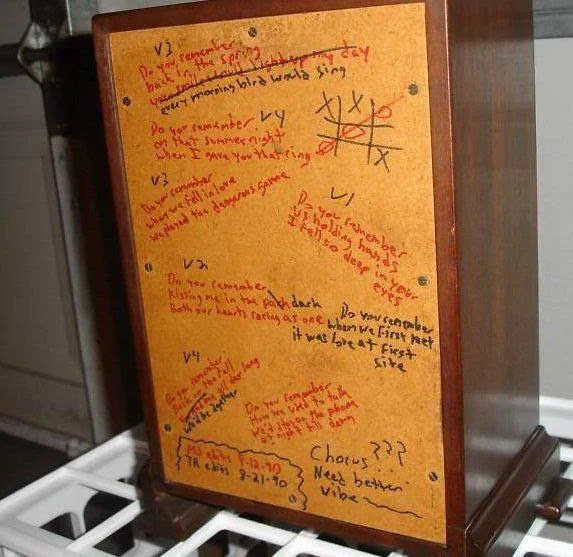 V3
Do you remember
back in the spring
your smile could light up my day
every morning bird would sing
V4
Do you remember
on that summer night
when I gave you that ring
X X O
O
O X
V3
Do you remember
when we fell in love
we played the dangerous game
V1
Do you remember
us holding hands
I fell so deep in your
eyes
V2
Do you remember
Kissing me in the dark
Both our hearts racing as one
Do you remember
when we first met
it was love at first
site
V4
Do you remember
Back in the fall
all day long
we'd be together
Do you remember
How we used to talk
we'd stay on the phone
at night till dawn
MJ edits 8-12-90
TR edits 8-21-90
Chorus???
Need better
vibe